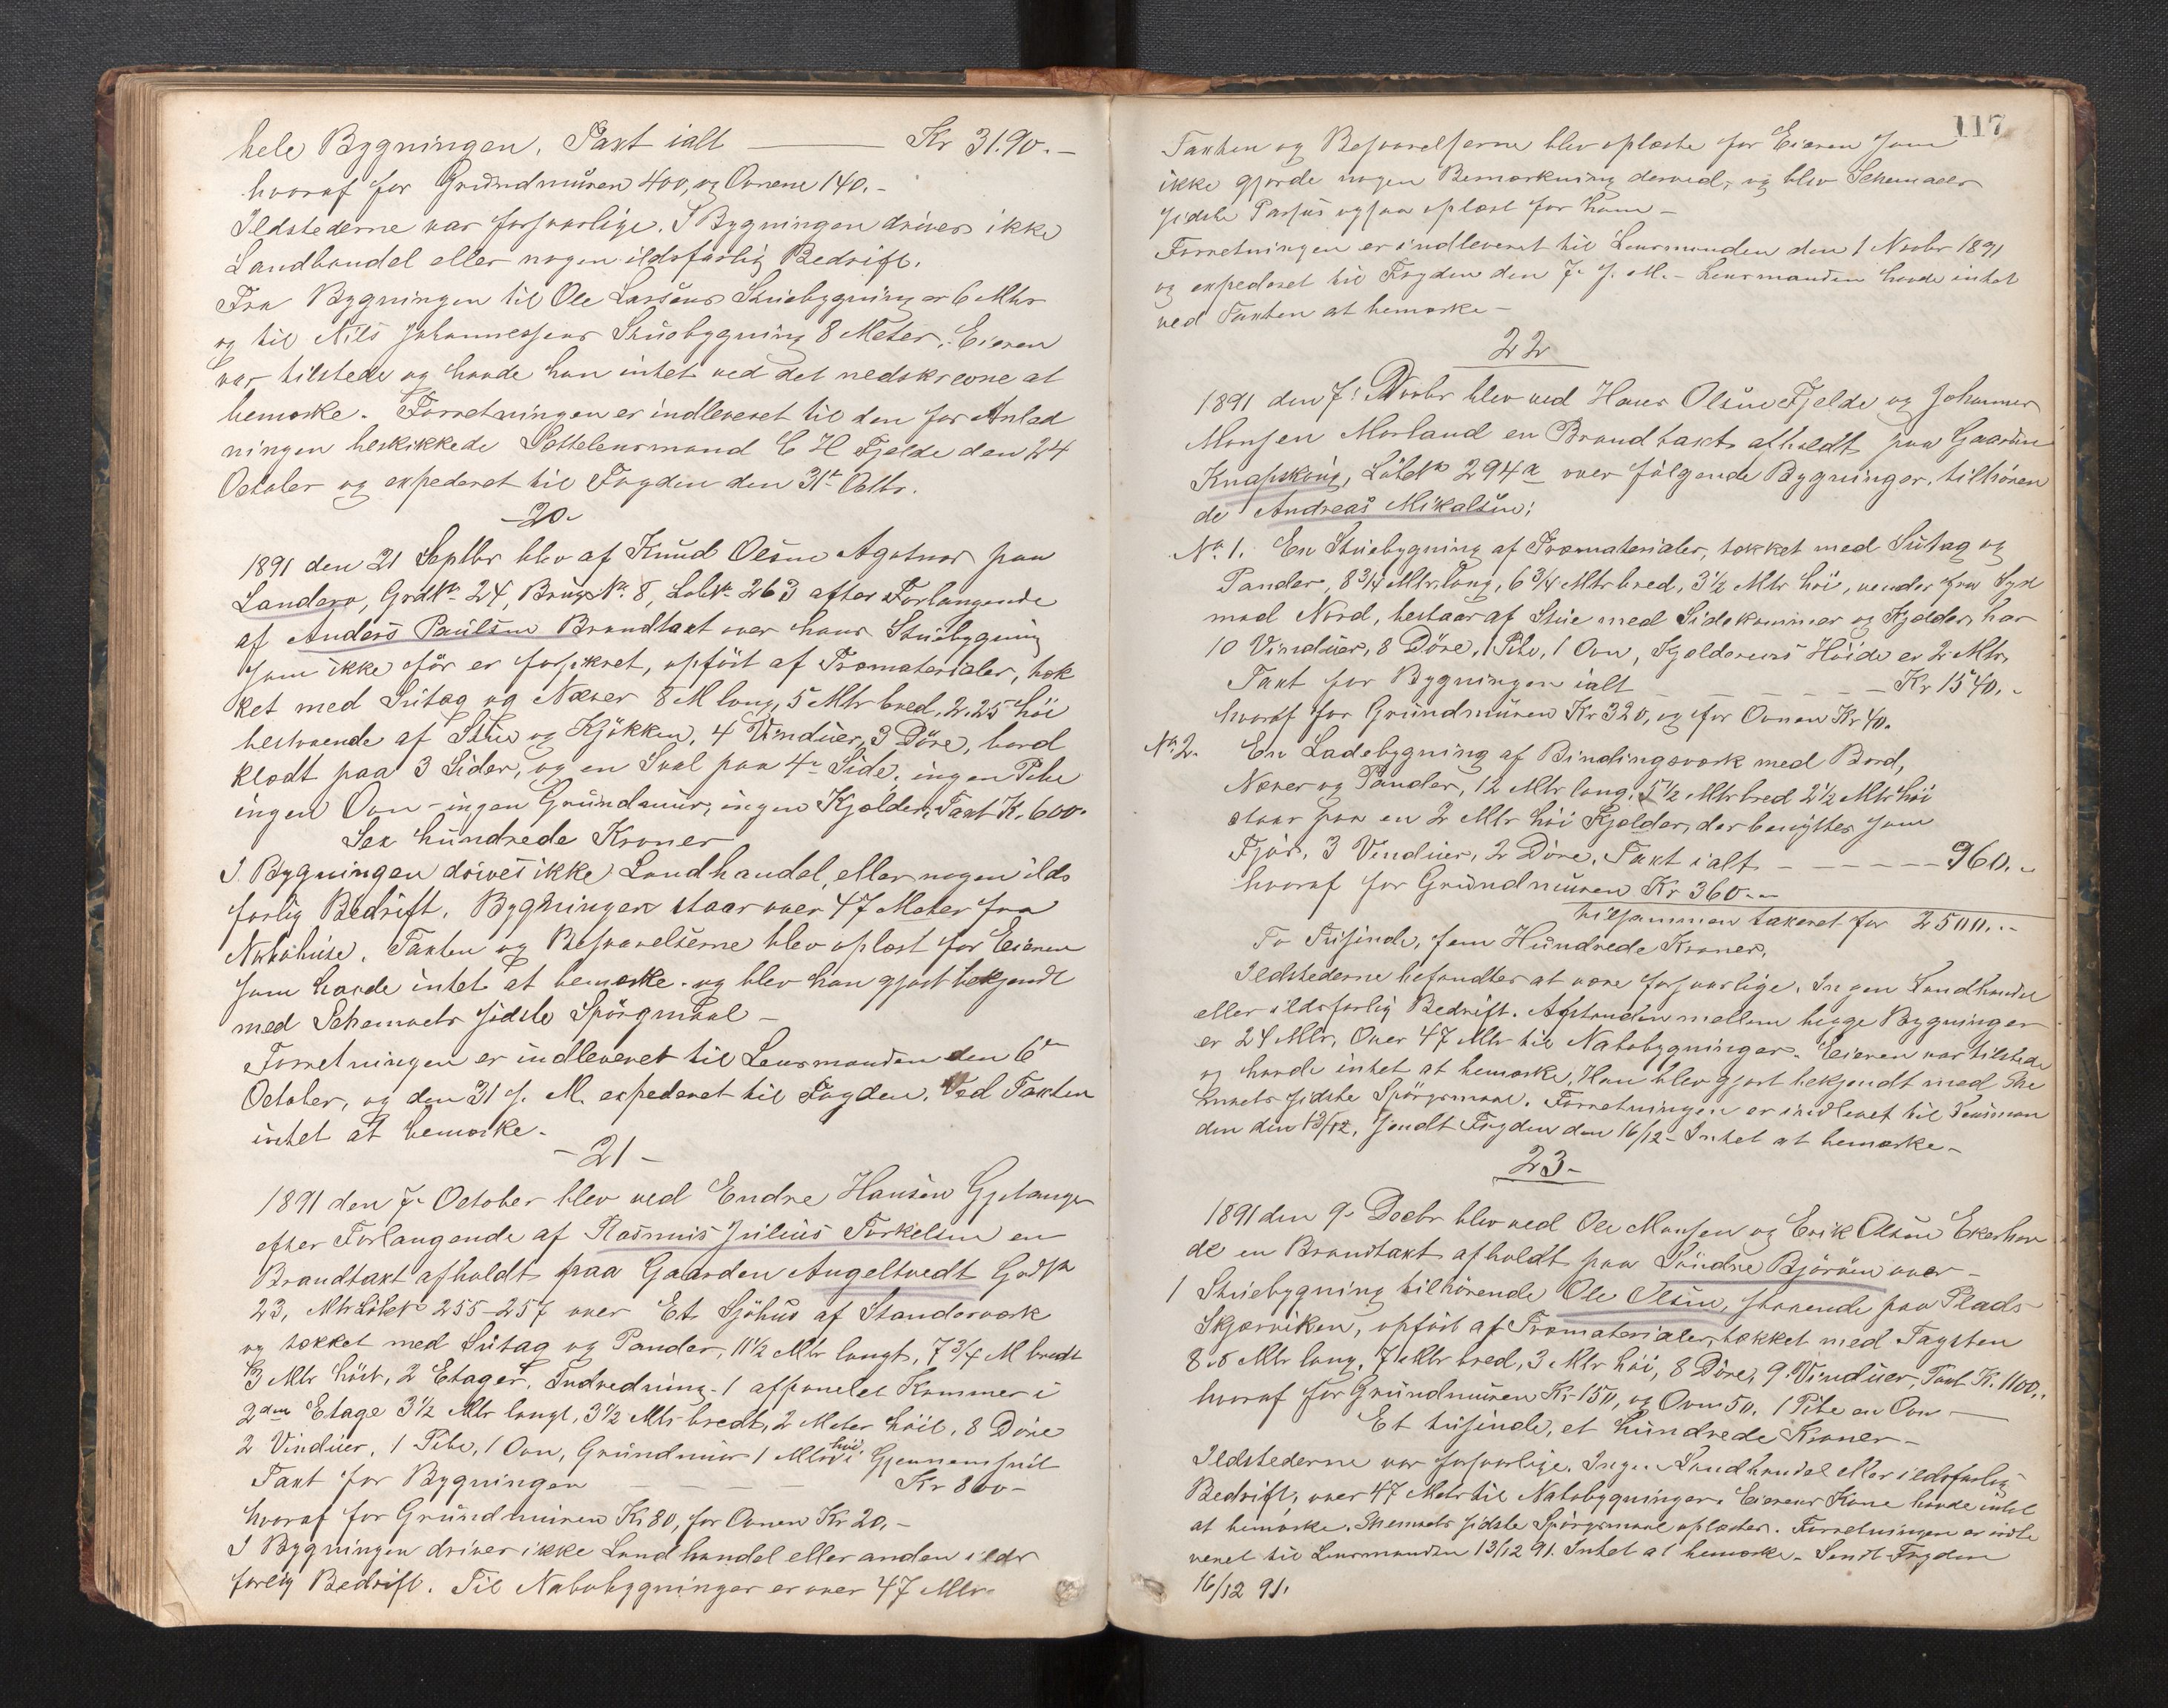 hele Bygningen. Taxt ialt ——— Kr 3190.—
hvoraf for Grundmuren 400, og Ovnene 140.-
Ildstederne var forsvarlige. I Bygningen drives ikke
Landhandel eller nogen ildsfarlig Bedrift.
Fra Bygningen til Ole Larsens Stuebygning er 6 Mtr
og til Nils Johannessens Stuebygning 8 Meter. Eieren
var tilstede og havde han intet ved det nedskrevne at
bemærke. Forretningen er indleveret til den for Anlad
ningen beskikkede Sættelensmand C H Fjelde den 24
October og expederet til Fogden den 31te Octbr.
-20-
1891 den 21 Septbr blev af Knud Olsen Agotnes paa
Landero, GrdNr 24, Brugs No 8, LøbNr 263 efter Forlangende
af Anders Paulsen Brandtaxt over hans Stuebygning
som ikke før er forsikret, opført af Træmaterialer, tæk
ket med Sutag og Næver 8 M lang, 5 Mtr bred, 2.25 høi
bestaaende af Stue og Kjøkken, 4 Vinduer, 3 Døre, bord
klædt paa 3 Sider, og en Sval paa 4de Side, ingen Pibe
ingen Ovn - ingen Grundmur, ingen Kjelder. Taxt K. 600.
Sex hundrede Kroner
I Bygningen drives ikke Landhandel, eller nogen ilds
farlig Bedrift. Bygningen staar over 47 Meter fra
Nabohuse. Taxten og Besvarelserne blev oplæst for Eieren
som havde intet at bemærke. og blev han gjort bekjendt
med Schemaets sidste Spørgmaal —
Forretningen er indleveret til Lensmanden den 6te
October, og den 31 s. M. expederet til Fogden. Ved Taxten
intet at bemærke.
- 21 -
1891 den 7. October blev ved Endre Hansen Gjetanger
efter Forlangende af Rasmus Julius Torkelsen en
Brandtaxt afholdt paa Gaarden Angeltvedt GrdNr
23, Mtr LøbNr 255-257 over Et Sjøhus af Standerværk
og tækket med Sutag og Pander, 11½ Mtr langt, 7¾ M bredt
3 Mtr høit, 2 Etager. Indredning. 1 afpanelet Kammer i
2den Etage 3½ Mtr langt, 3½ Mtr bredt, 2 Meter høit, 8 Døre
2 Vinduer, 1 Pibe, 1 Ovn, Grundmur 1 Mtr høi i Gjennemsnit
Taxt for Bygningen — — — — Kr 800 -
hvoraf for Grundmuren Kr 80, for Ovnen Kr 20.-
I Bygningen drives ikke Landhandel eller anden ilds
farlig Bedrift. Til Nabobygninger er over 47 Mtr.
117
Taxten og Besvarelserne blev oplæste for Eieren som
ikke gjorde nogen Bemærkning derved, og blev Schemaets
sidste Passus ogsaa oplæst for ham —
Forretningen er indleveret til Lensmanden den 1 Novbr 1891
og expederet til Fogden den 7. s. M. - Lensmanden havde intet
ved Taxten at bemærke —
22
1891 den 7. Novbr blev ved Hans Olsen Fjelde og Johannes
Monsen Morland en Brandtaxt afholdt paa Gaarden
Knapskoug, LøbNr 294a over følgende Bygninger, tilhøren
de Andreas Mikalsen:
No 1. En Stuebygning af Træmaterialer, tækket med Sutag og
Pander, 8¾ Mtr lang, 6¾ Mtr bred, 3½ Mtr høi, vender fra Syd
mod Nord, bestaar af Stue med Sidekammer og Kjelder, har
10 Vinduer, 8 Døre, 1 Pibe, 1 Ovn, Kjelderens Høide er 2 Mtr,
Taxt for Bygningen ialt — — — — — Kr 1540.-
hvoraf for Grundmuren Kr 320, og for Ovnen Kr 40.
No 2. En Ladebygning af Bindingsværk med Bord,
Næver og Pander, 12 Mtr lang, 5½ Mtr bred 2½ Mtr høi
staar paa en 2 Mtr høi Kjelder, der benyttes som
Fjøs, 3 Vinduer, 2 Døre, Taxt ialt — — — — — 960.-
hvoraf for Grundmuren Kr 360.-
tilsammen taxeret for 2500.-
To Tusinde, fem Hundrede Kroner.
Ildstederne befandtes at være forsvarlige. Ingen Landhandel
eller ildsfarlig Bedrift. Afstanden mellem begge Bygninger
er 24 Mtr, Over 47 Mtr til Nabobygninger. Eieren var tilstede
og havde intet at bemærke. Han blev gjort bekjendt med Ske
maets sidste Spørgsmaal. Forretningen er indlevet til Lensman
den den 13/12, sendt Fogden den 16/12 - Intet at bemærke —
23-
1891 den 9. Decbr blev ved Ole Monsen og Erik Olsen Ekerhov
de en Brandtaxt afholdt paa Søndre Bjørøen over —
1 Stuebygning tilhørende Ole Olsen, staaende paa Plads
Skjærviken, opført af Træmaterialer, tækket med Tagsten
8.8 Mtr lang, 7 Mtr bred, 3 Mtr høi, 8 Døre, 9 Vinduer, Taxt K. 1100.-
hvoraf for Grundmuren Kr 150, og Ovn 50. 1 Pibe en Ovn —
Et tusinde, et hundrede Kroner —
Ildstederne var forsvarlige. Ingen Landhandel eller ildsfarlig
Bedrift, over 47 Metr til Nabobygninger. Eierens Kone havde intet
at bemærke. Skemaets sidste Spørgsmaal oplæstes. Forretningen er indle
veret til Lensmanden 13/12 91. Intet at bemærke. Sendt Fogden
16/12 91.